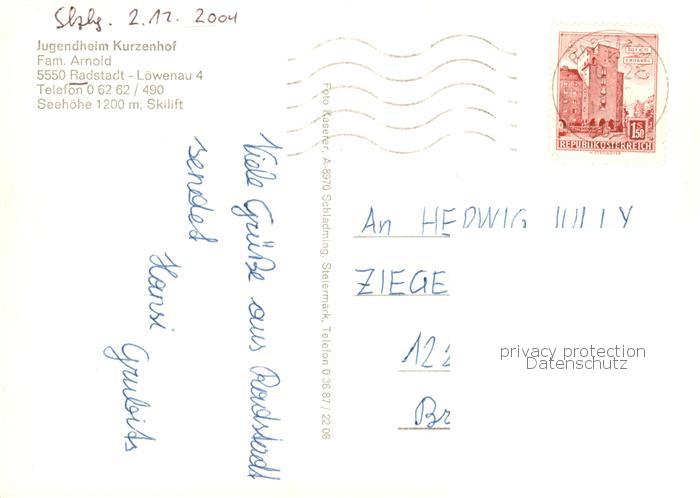 Slzbg. 2.12. 2004
Jugendheim Kurzenhof
Fam. Arnold
5550 Radstadt - Löwenau 4
Telefon 0 62 62 / 490
Seehöhe 1200 m, Skilift
Viele Grüße aus Radstadt
sendet
Hansi
Grubits
Foto Kaserer, A-8970 Schladming, Steiermark, Telefon 0 36 87 / 22 06
1 S 50
REPUBLIK ÖSTERREICH
An HEDWIG
ZIEGE
12
Br
privacy protection
Datenschutz